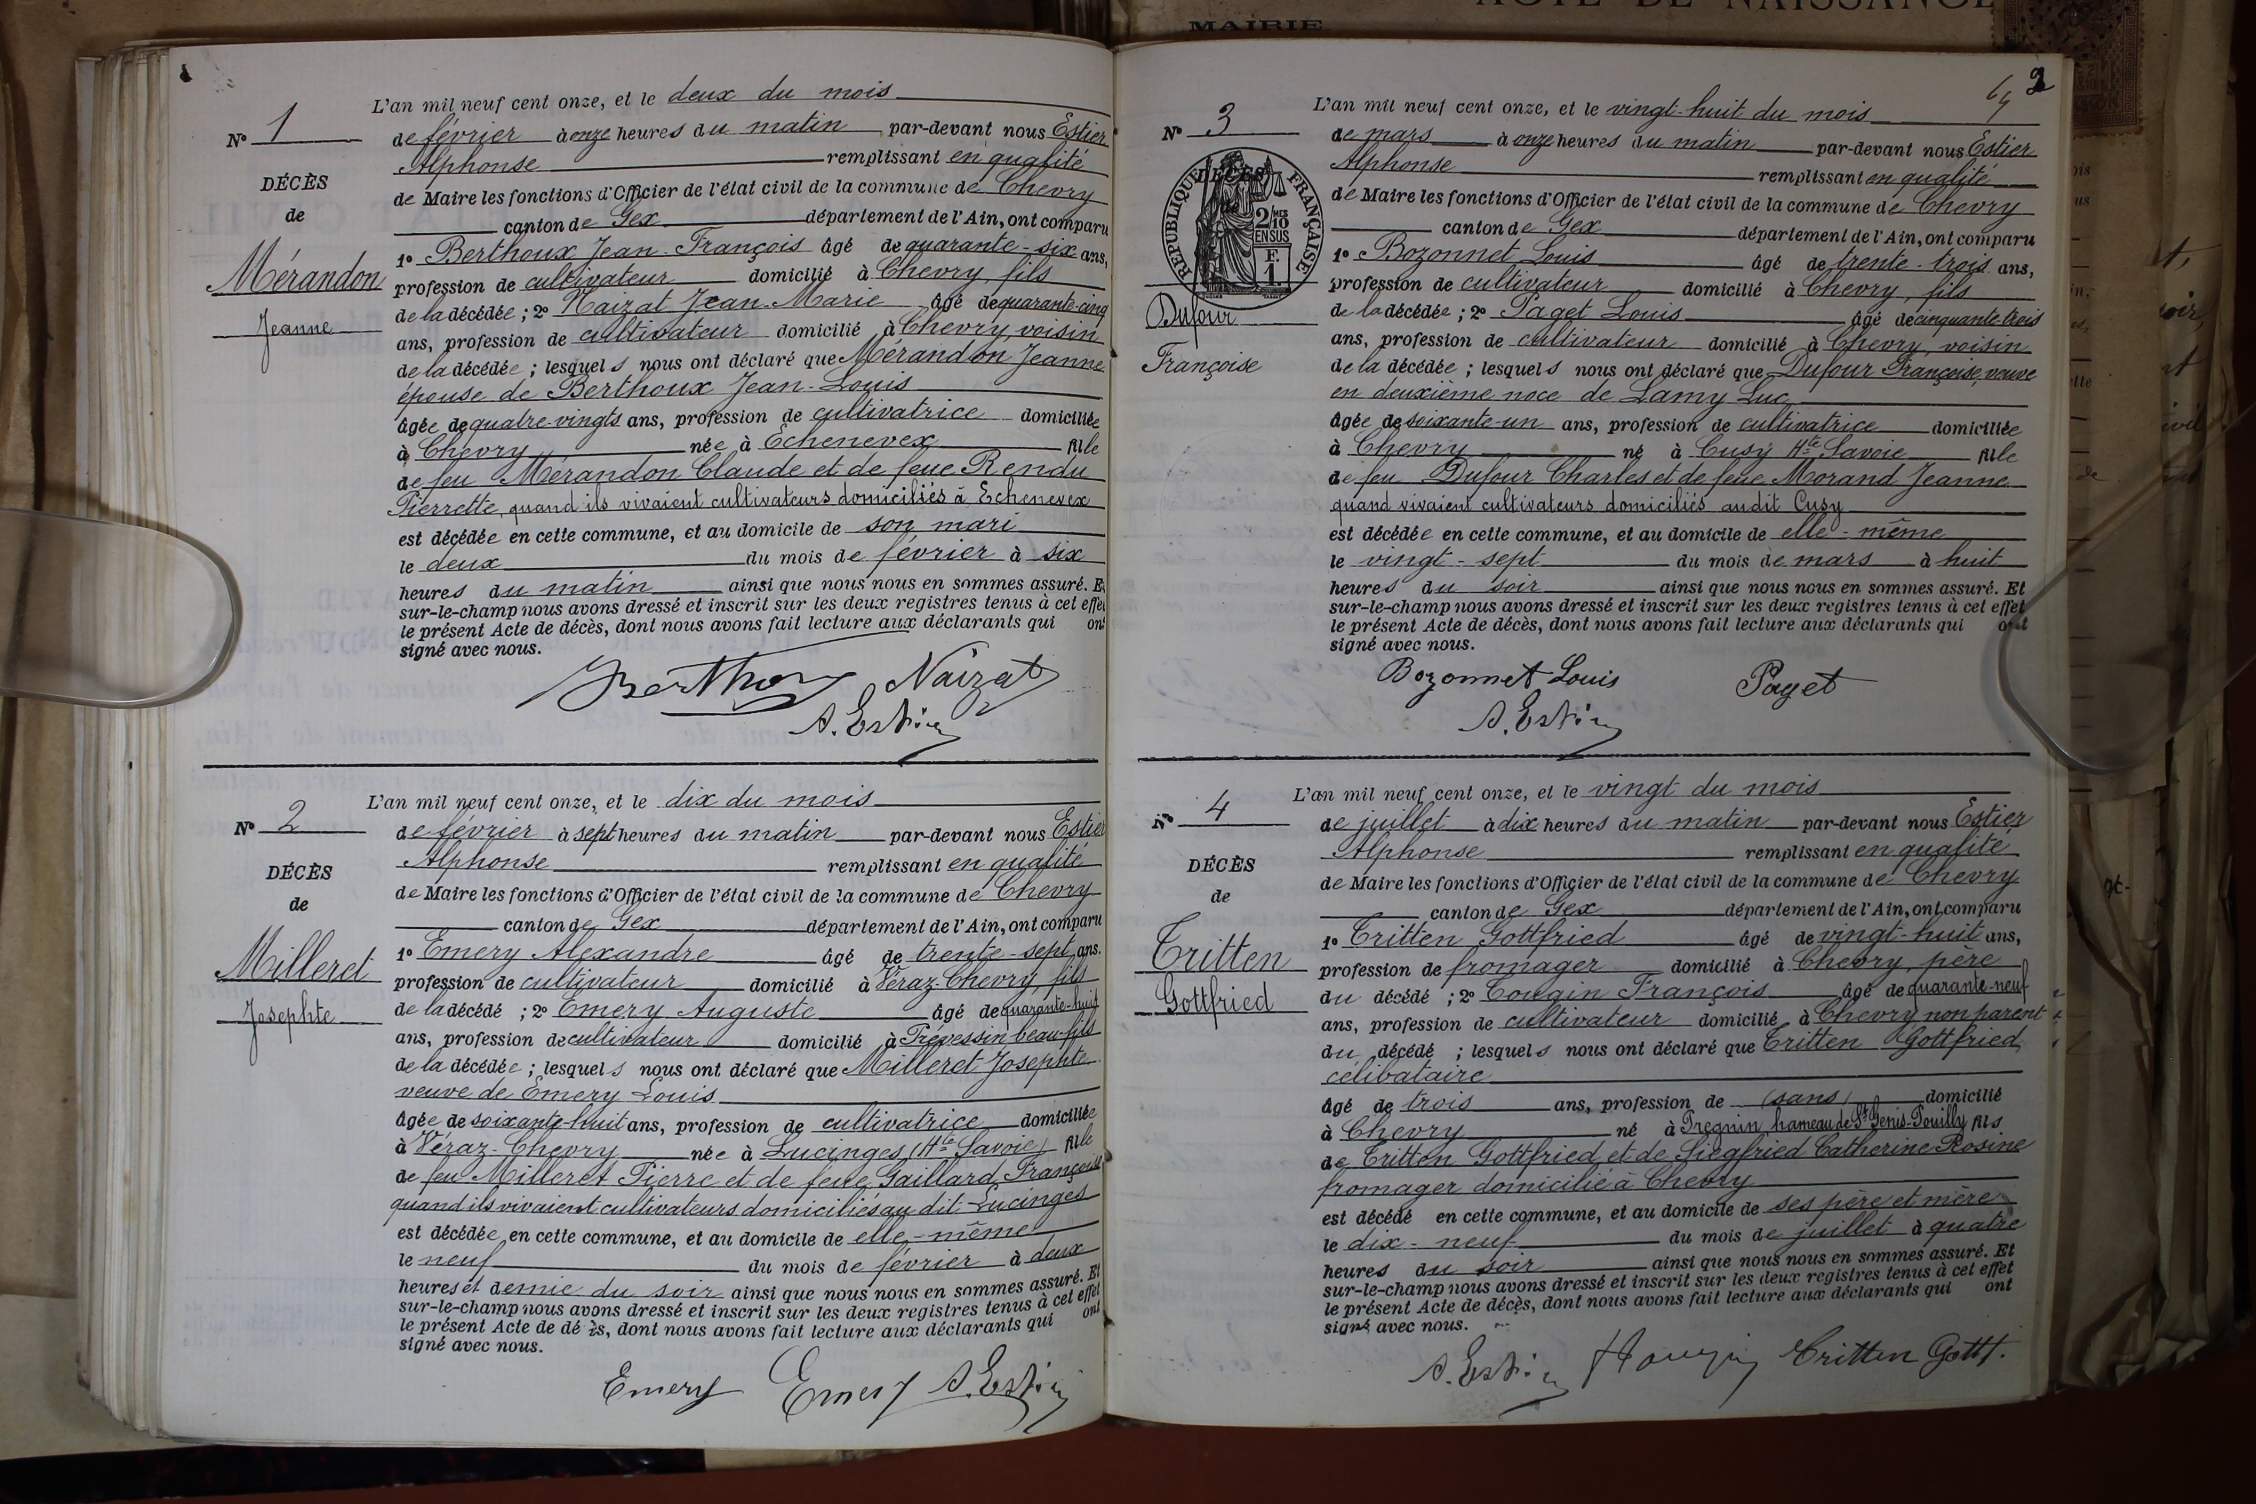 MAIRIE
ACTE DE NAISSANCE
L'an mil neuf cent onze, et le deux du mois
N° 1
de février à onze heures du matin par-devant nous Estier
Alphonse remplissant en qualité
DÉCÈS
de Maire les fonctions d'Officier de l'état civil de la commune de Chevry
de
canton de Gex département de l'Ain, ont comparu
1° Berthoux Jean-François âgé de quarante-six ans,
Mérandon
profession de cultivateur domicilié à Chevry, fils
de la décédée ; 2° Naizat Jean-Marie âgé de quarante-cinq
Jeanne
ans, profession de cultivateur domicilié à Chevry, voisin
de la décédée ; lesquels nous ont déclaré que Mérandon Jeanne
épouse de Berthoux Jean-Louis
âgée de quatre-vingts ans, profession de cultivatrice domiciliée
à Chevry née à Echenevex fille
de feu Mérandon Claude et de feue Rendu
Pierrette, quand ils vivaient cultivateurs domiciliés à Echenevex
est décédée en cette commune, et au domicile de son mari
le deux du mois de février à six
heures du matin ainsi que nous nous en sommes assuré. Et
sur-le-champ nous avons dressé et inscrit sur les deux registres tenus à cet effet
le présent Acte de décès, dont nous avons fait lecture aux déclarants qui ont
signé avec nous.
Berthoux Naizat
A. Estier
L'an mil neuf cent onze, et le dix du mois
N° 2
de février à sept heures du matin par-devant nous Estier
Alphonse remplissant en qualité
DÉCÈS
de Maire les fonctions d'Officier de l'état civil de la commune de Chevry
de
canton de Gex département de l'Ain, ont comparu
1° Emery Alexandre âgé de trente-sept ans.
Milleret
profession de cultivateur domicilié à Véraz-Chevry, fils
de la décédé ; 2° Emery Auguste âgé de quarante-huit
Josephte
ans, profession de cultivateur domicilié à Prévessin beau-fils
de la décédée ; lesquels nous ont déclaré que Milleret Josephte
veuve de Emery Louis
âgée de soixante-huit ans, profession de cultivatrice domiciliée
à Véraz-Chevry née à Lucinges (Hte Savoie) fille
de feu Milleret Pierre et de feue Gaillard Françoise
quand ils vivaient cultivateurs domiciliés au dit Lucinges
est décédée en cette commune, et au domicile de elle-même
le neuf du mois de février à deux
heures et demie du soir ainsi que nous nous en sommes assuré. Et
sur-le-champ nous avons dressé et inscrit sur les deux registres tenus à cet effet
le présent Acte de dé ès, dont nous avons fait lecture aux déclarants qui ont
signé avec nous.
Emery Emery A. Estier
2
L'an mil neuf cent onze, et le vingt-huit du mois
N° 3
de mars à onze heures du matin par-devant nous Estier
Alphonse remplissant en qualité
RÉPUBLIQUE FRANÇAISE
DÉCÈS
2/10 MES
EN SUS
F.
1.
de Maire les fonctions d'Officier de l'état civil de la commune de Chevry
canton de Gex département de l'Ain, ont comparu
1° Bozonnet Louis âgé de trente-trois ans,
profession de cultivateur domicilié à Chevry, fils
Dufour
de la décédée ; 2° Paget Louis âgé de cinquante-trois
ans, profession de cultivateur domicilié à Chevry, voisin
Françoise
de la décédée ; lesquels nous ont déclaré que Dufour Françoise, veuve
en deuxième noce de Lamy Luc
âgée de soixante-un ans, profession de cultivatrice domiciliée
à Chevry né à Cusy Hte Savoie fille
de feu Dufour Charles et de feue Morand Jeanne
quand vivaient cultivateurs domiciliés audit Cusy
est décédée en cette commune, et au domicile de elle-même
le vingt-sept du mois de mars à huit
heures du soir ainsi que nous nous en sommes assuré. Et
sur-le-champ nous avons dressé et inscrit sur les deux registres tenus à cet effet
le présent Acte de décès, dont nous avons fait lecture aux déclarants qui ont
signé avec nous.
Bozonnet Louis Paget
A. Estier
L'an mil neuf cent onze, et le vingt du mois
N° 4
de juillet à dix heures du matin par-devant nous Estier
Alphonse remplissant en qualité
DÉCÈS
de Maire les fonctions d'Officier de l'état civil de la commune de Chevry
de
canton de Gex département de l'Ain, ont comparu
1° Tritten Gottfried âgé de vingt-huit ans,
Tritten
profession de fromager domicilié à Chevry, père
Gottfried
du décédé ; 2° Tougin François âgé de quarante-neuf
ans, profession de cultivateur domicilié à Chevry non parent
du décédé ; lesquels nous ont déclaré que Tritten Gottfried
célibataire
âgé de trois ans, profession de (sans) domicilié
à Chevry né à Pregnin, hameau de St Genis-Pouilly fils
de Tritten Gottfried et de Siegfried Catherine Rosine
fromager domicilié à Chevry
est décédé en cette commune, et au domicile de ses père et mère
le dix-neuf du mois de juillet à quatre
heures du soir ainsi que nous nous en sommes assuré. Et
sur-le-champ nous avons dressé et inscrit sur les deux registres tenus à cet effet
le présent Acte de décès, dont nous avons fait lecture aux déclarants qui ont
signé avec nous.
A. Estier Tritten Gottf.